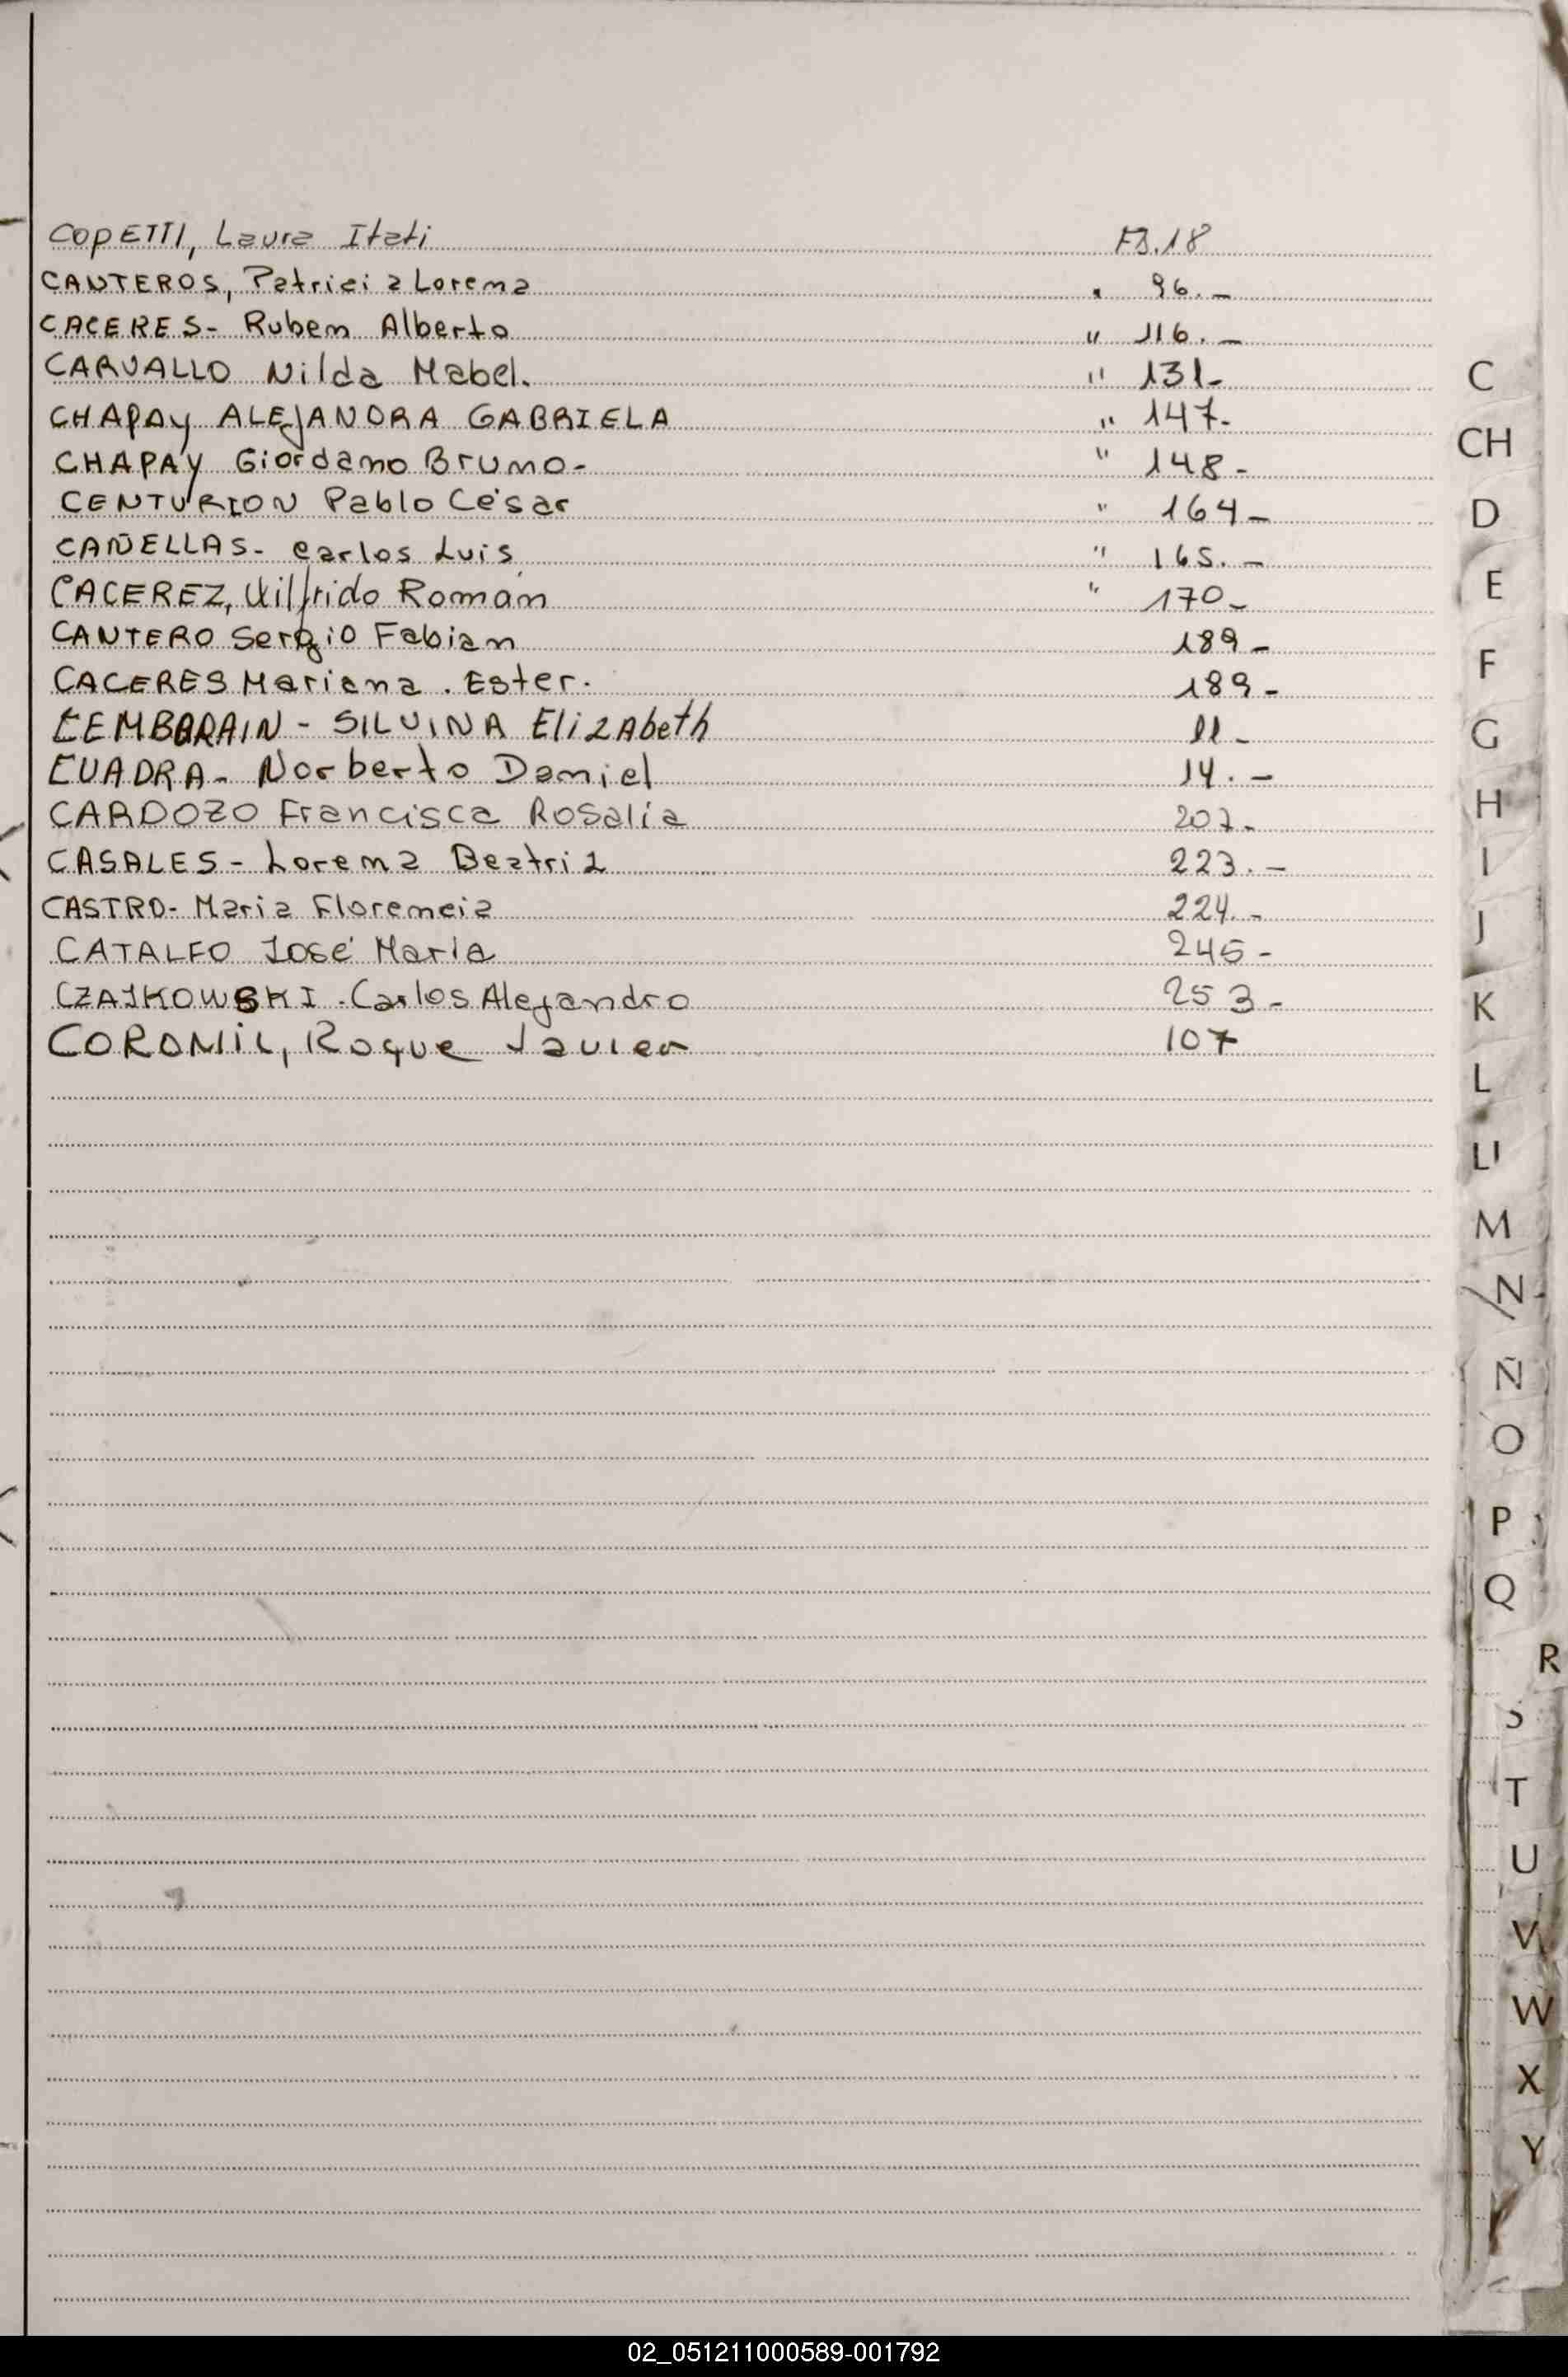 COPETTI, Laura Itati FS.18
CANTEROS, Patricia Lorena " 96.-
CACERES- Ruben Alberto " 116.-
CARVALLO Nilda Mabel. " 131-
CHAPAY ALEJANDRA GABRIELA " 147-
CHAPAY Giordano Bruno- " 148-
CENTURION Pablo César " 164-
CAÑELLAS- Carlos Luis " 165.-
CACEREZ, Wilfrido Román " 170-
CANTERO Sergio Fabian 189-
CACERES Mariana. Ester. 189-
CEMBORAIN - SILVINA Elizabeth 11-
CUADRA- Norberto Daniel 14.-
CARDOZO Francisca Rosalía 207-
CASALES- Lorena Beatriz 223.-
CASTRO- Maria Florencia 224.-
CATALFO José María 245-
CZAJKOWSKI. Carlos Alejandro 253-
COROMIL, Roque Javier 107
C
CH
D
E
F
G
H
I
J
K
L
LL
M
N
Ñ
O
P
Q
R
S
T
U
V
W
X
Y
02_051211000589-001792